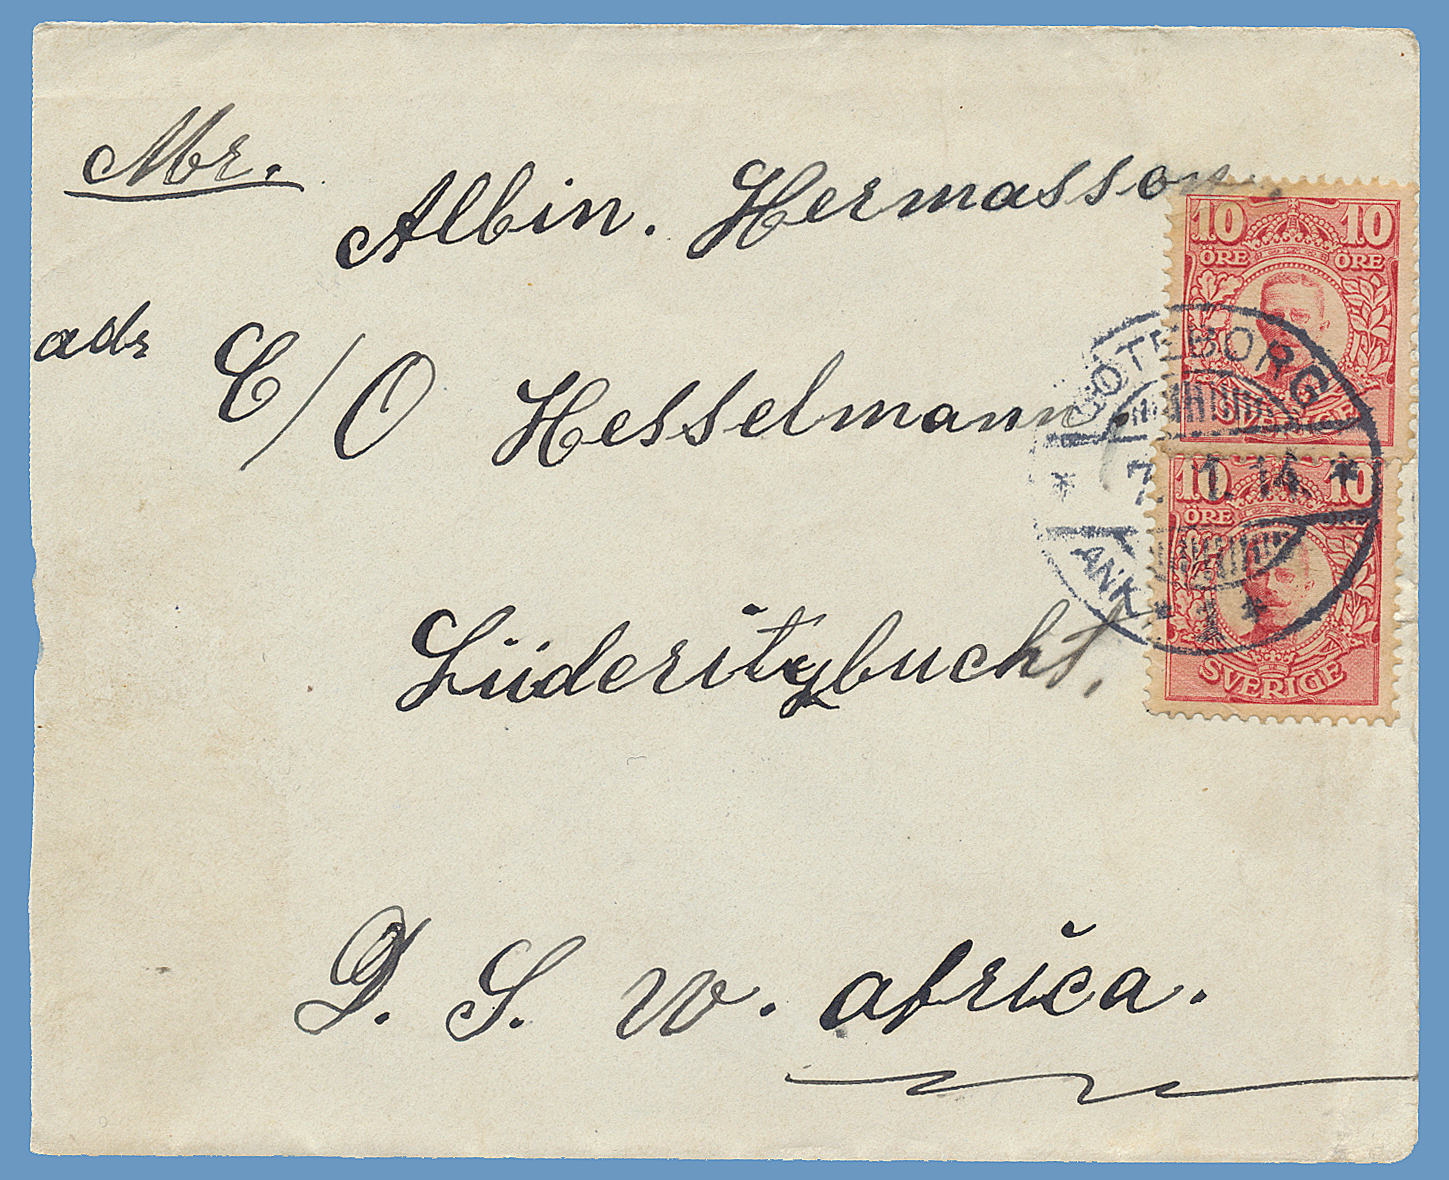 Mr.
Albin. Hermasson.
adr C/O Hesselmann.
Lüderitzbucht.
D. S. W. africa.
10 10
ÖRE ÖRE
SVERIGE
10 10
ÖRE ÖRE
SVERIGE
GÖTEBORG
7. 1. 14.
ANK
1